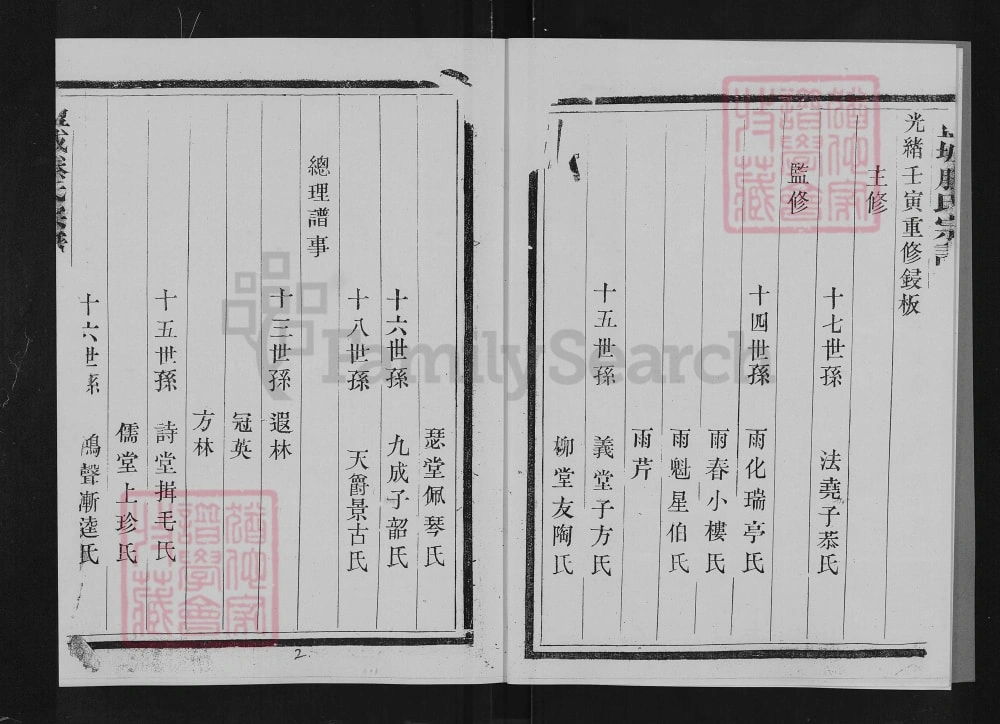 光緒壬寅重修鋟板
主修
十七世孫 法堯子恭氏
監修
十四世孫 雨化瑞亭氏
雨春小樓氏
雨魁星伯氏
雨芹
十五世孫 義堂子方氏
柳堂友陶氏
瑟堂佩琴氏
十六世孫 九成子韶氏
十八世孫 天爵景古氏
總理譜事
十三世孫 遐林
冠英
方林
十五世孫 詩堂揖毛氏
儒堂上珍氏
十六世孫 鴻聲漸逵氏
2
FamilySearch